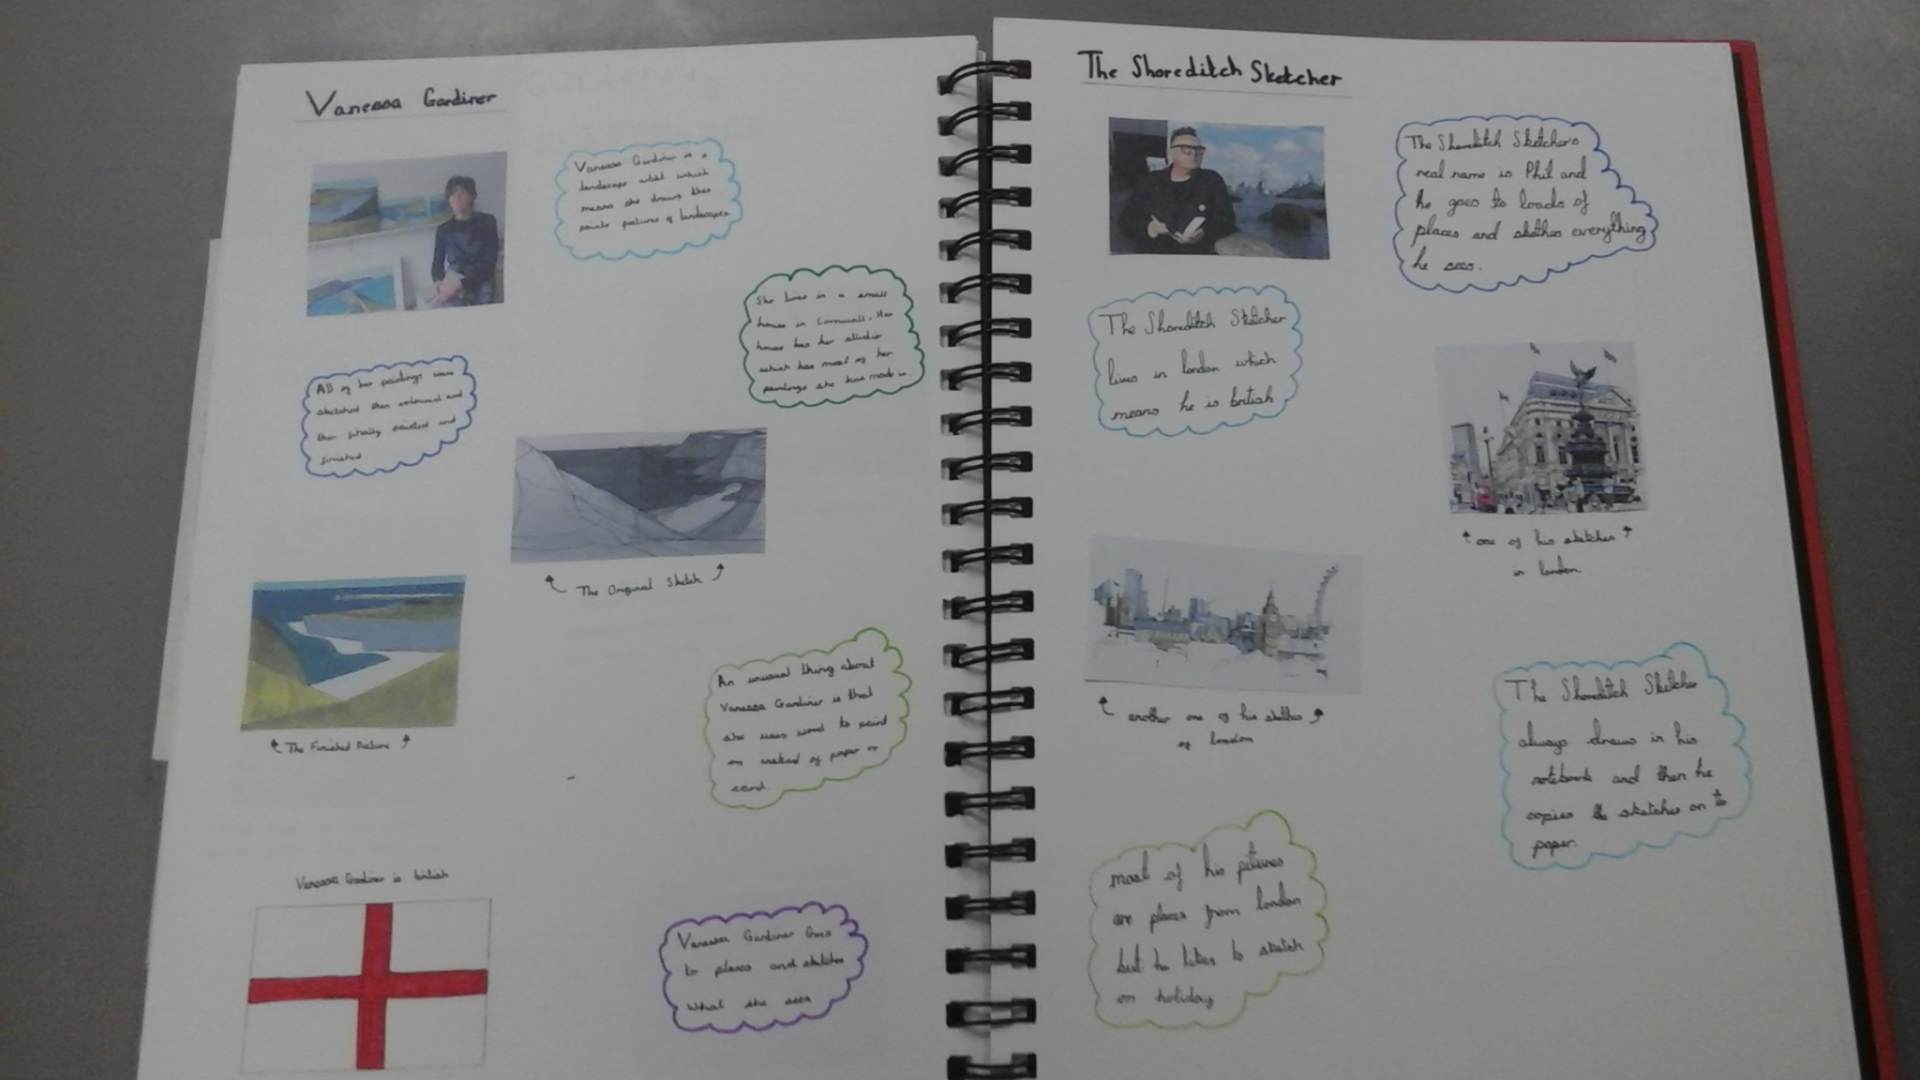 Vanessa Gardiner
Vanessa Gardiner is a
landscape
means she draws then
paints pictures of landscapes
She lives in a small
house in Cornwall. Her
house has her studio
which has most of her
paintings she has made in
All of her paintings were
sketched then coloured and
then painted and
finished
The Original Sketch
The Finished Picture
An unusual thing about
Vanessa Gardiner is that
she uses wood to paint
on instead of paper or
card.
Vanessa Gardiner is british
Vanessa Gardiner Goes
to places and sketches
What she sees
The Shoreditch Sketcher
The Shoreditch Sketcher's
real name is Phil and
he goes to loads of
places and skethes everything
he sees.
The Shoreditch Sketcher
lives in london which
means he is british
one of his sketches
in london
another one of his skethes
of london
The Shoreditch Sketcher
always draws in his
notebook and then he
copies the sketches on to
paper.
most of his pitures
are places from london
but he likes to sketch
on holiday